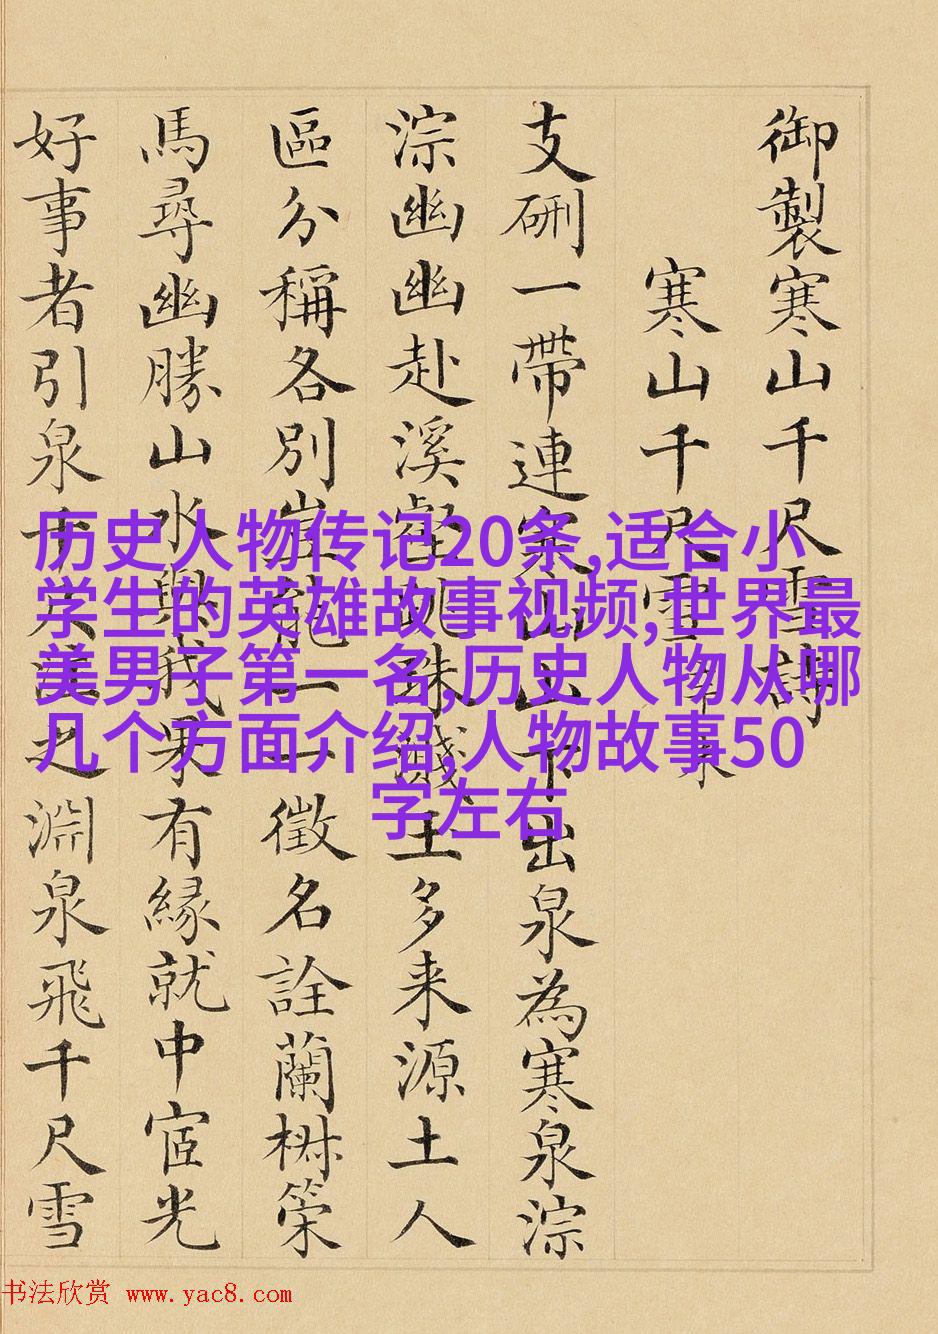 御製寒山千尺雪詩
寒山千尺雪
支硎一帶連寒山山下出泉為寒泉淙
淙幽幽赴溪壑跳珠濺玉多来源土人
區分稱各別豈能一一徵名詮蘭椒策
馬尋幽勝山水與我果有緣就中宧光
好事者引泉千尺注之淵泉飛千尺雪
历史人物传记20条,适合小
学生的英雄故事视频,世界最
美男子第一名,历史人物从哪
几个方面介绍,人物故事50
字左右
书法欣赏 www.yac8.com